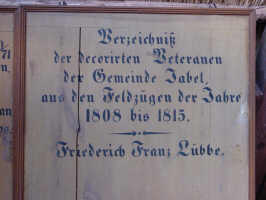 Verzeichniß
der decorirten Veteranen
der Gemeinde Jabel,
aus den Feldzügen der Jahre
1808 bis 1815.
Friederich Franz Lübbe.